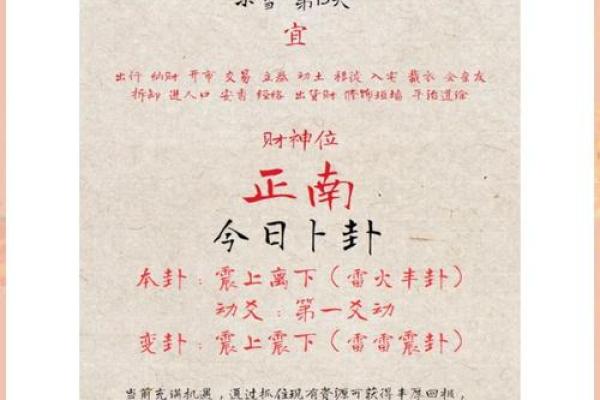 雪 第
宜
出行 纳财 开市 交易 立券 动土 移徙 入宅 裁衣 会亲友
拆卸 進人口 安香 经络 出貨财 修饰垣墙 平治道涂
财神位
正南
今日卜卦
本卦：震上离下（雷火丰卦）
动爻：第一爻动
变卦：震上震下（雷雷震卦）
当前充满机遇，通过抓住现有资源可获得丰厚回报，